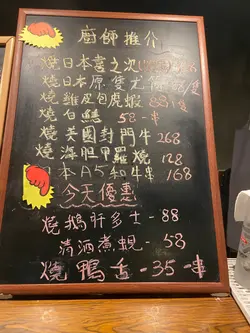 廚師推介
燒日本喜之次
燒日本原隻尤
燒雞皮包虎蝦 88
燒白鱔 58-串
燒美國封門牛 268
燒海胆甲羅燒 128
燒日本A5和牛串 168
今天優惠
燒鵝肝多士-88
清酒煮蜆-58
燒鴨舌-35-串